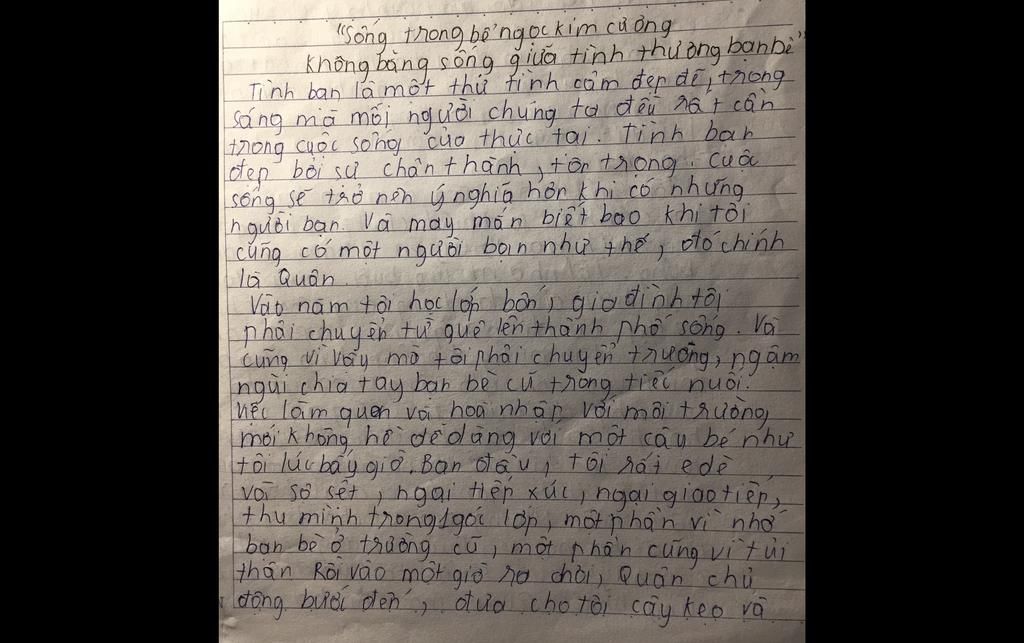 "Sống trong bể ngọc kim cương
Không bằng sống giữa tình thương bạn bè"
Tình bạn là một thứ tình cảm đẹp đẽ, trong
sáng mà mỗi người chúng ta đều rất cần
trong cuộc sống của thực tại. Tình bạn
đẹp bởi sự chân thành, tôn trọng. Cuộc
sống sẽ trở nên ý nghĩa hơn khi có những
người bạn. Và may mắn biết bao khi tôi
cũng có một người bạn như thế, đó chính
là Quân.
Vào năm tôi học lớp bốn, gia đình tôi
phải chuyển từ quê lên thành phố sống. Và
cũng vì vậy mà tôi phải chuyển trường, ngậm
ngùi chia tay bạn bè cũ trong tiếc nuối.
Việc làm quen và hoà nhập với môi trường
mới không hề dễ dàng với một cậu bé như
tôi lúc bấy giờ. Ban đầu, tôi rất e dè
và sợ sệt, ngại tiếp xúc, ngại giao tiếp,
thu mình trong 1 góc lớp, một phần vì nhớ
bạn bè ở trường cũ, một phần cũng vì tủi
thân. Rồi vào một giờ ra chơi, Quân chủ
động bước đến, đưa cho tôi cây kẹo và